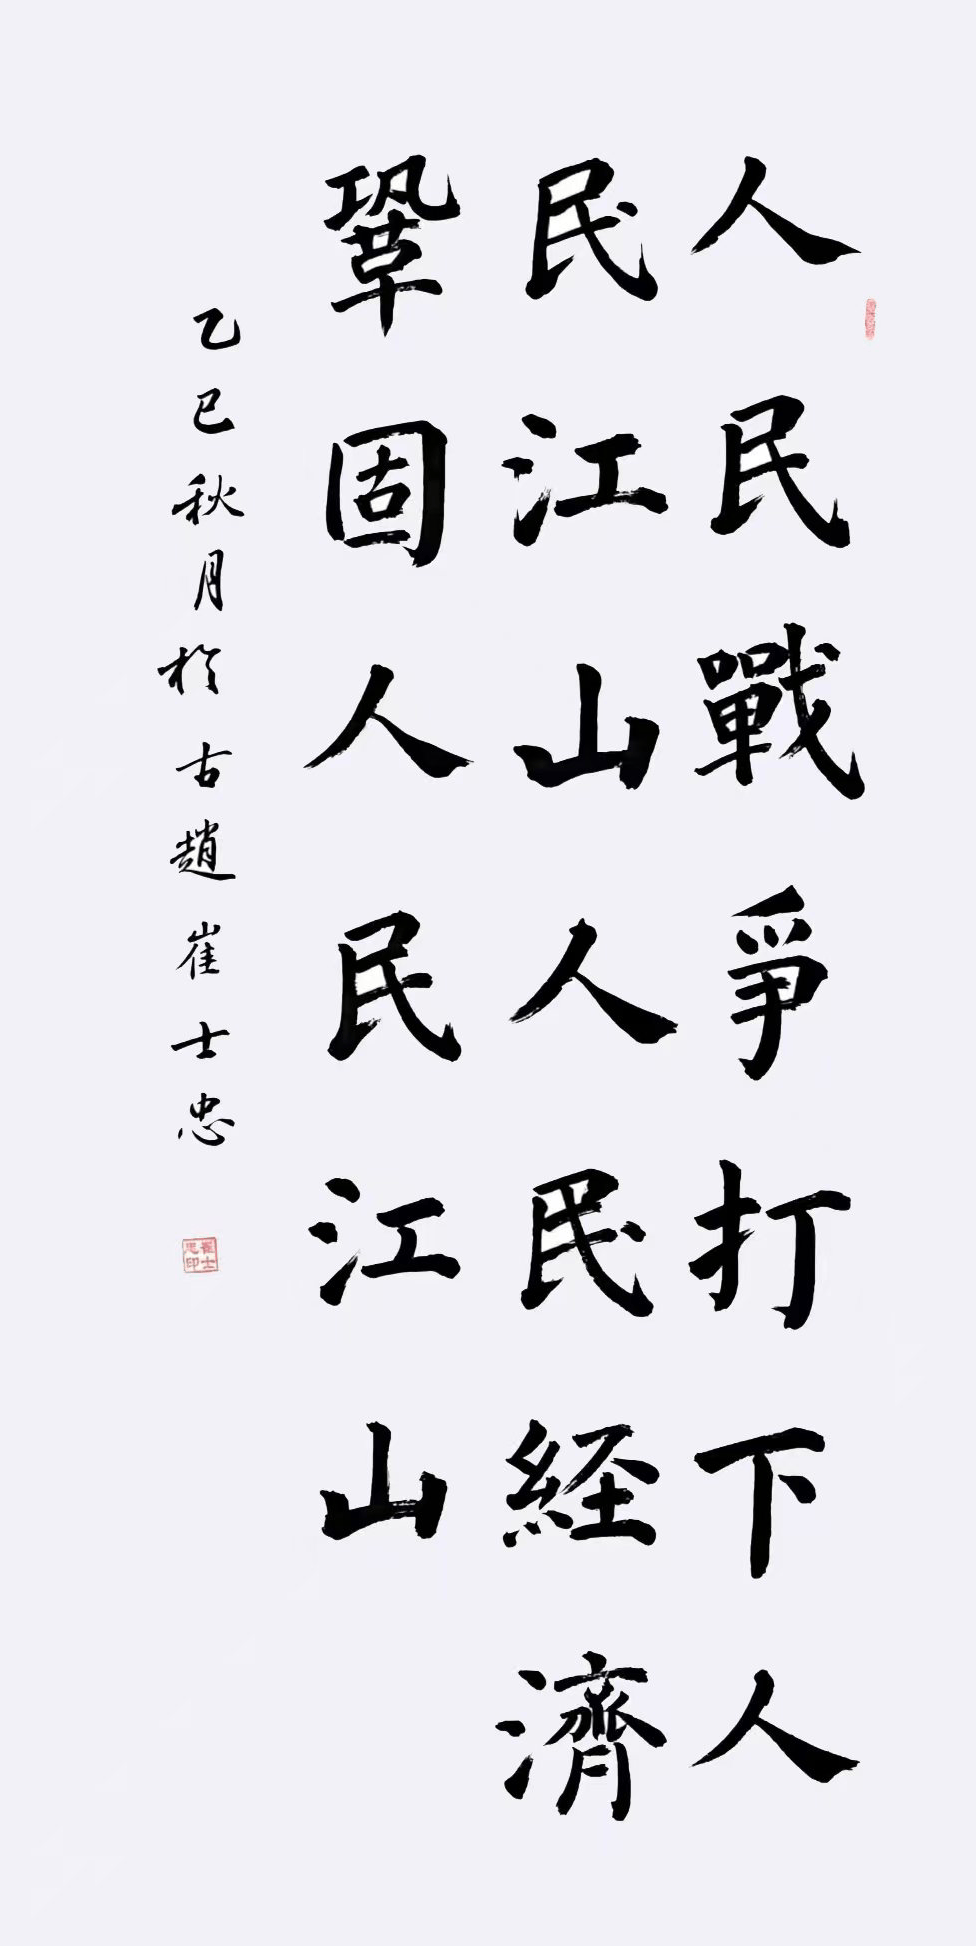 人民戰爭打下人
民江山人民経濟
鞏固人民江山
乙巳秋月於古趙崔士忠
崔士忠印